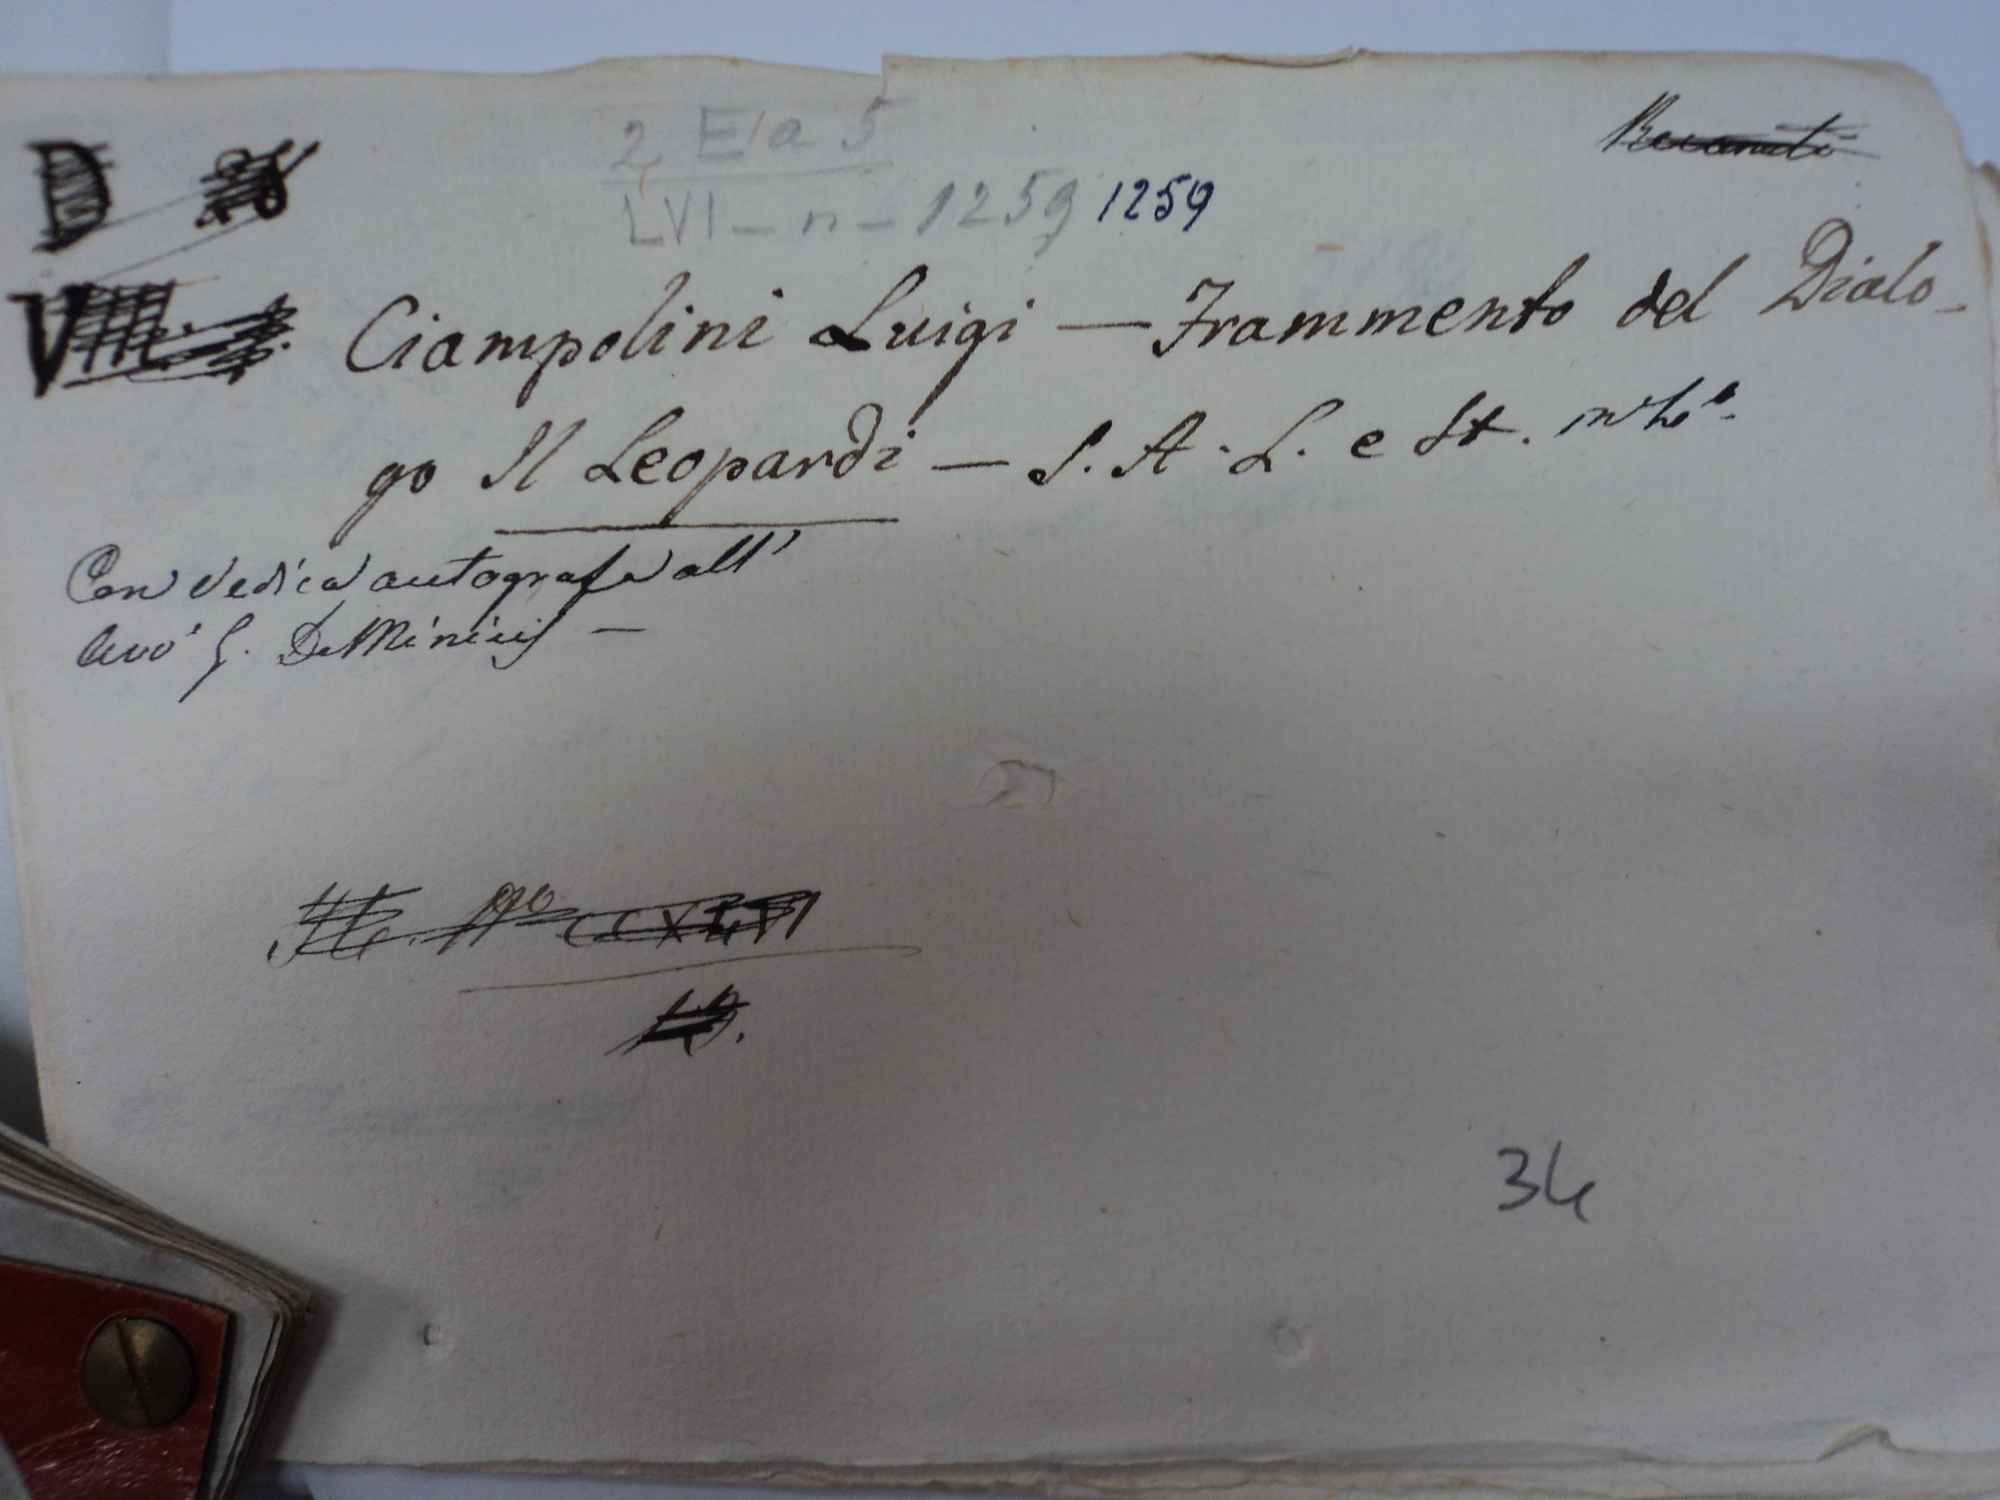 D
2 E/a 5
Recanati
LVI - n - 1259 1259
VIII
Ciampolini Luigi — Frammento del Dialo-
go Il Leopardi — S. A. L. e St.
Con dedica autografa all'
Avv° G. De Minicis —
N° CCXLVI
34